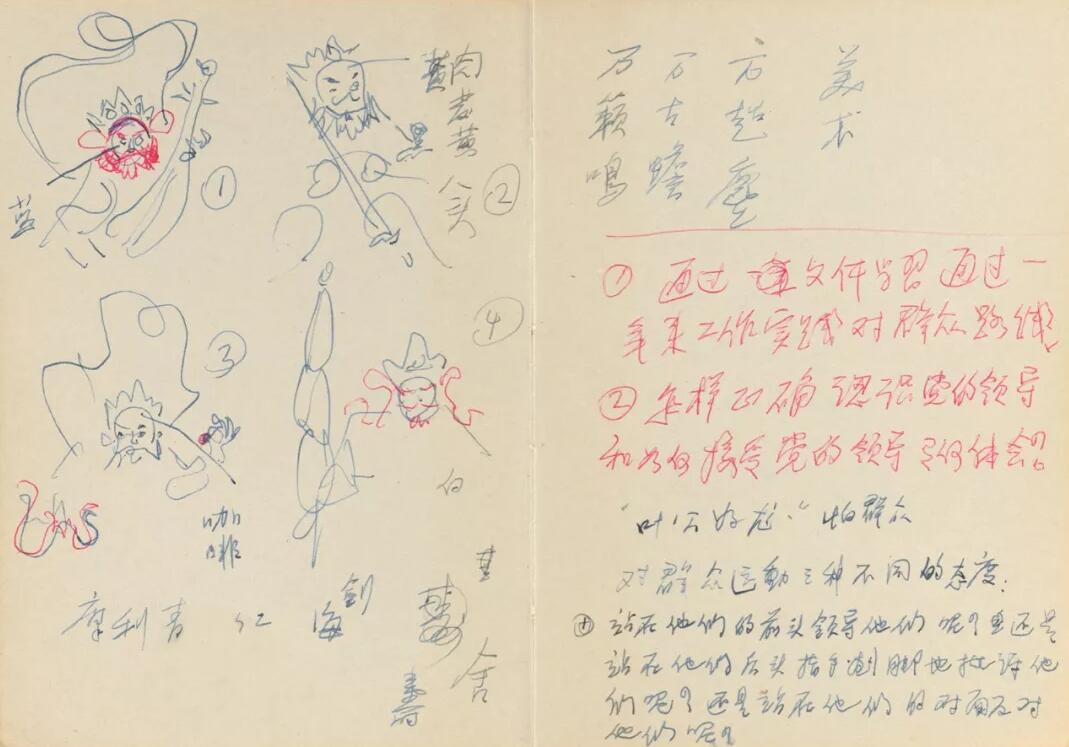 蓝
①
黄肉
老黄
八头
②
③
咖啡
④
白
摩利青 红 海
剑
寿
舍
万籁鸣
万古蟾
方超塵
美术
① 通过文件学習通过一
年来工作实践对群众路线
② 怎样正确認识党的领导
和如何接受党的领导有何体会?
"叶公好龙"怕群众
对群众运動三种不同的态度.
站在他们的前头领导他们呢?还是
站在他们后头指手划脚地批评他
们呢?还是站在他们的对面反对
他们呢?